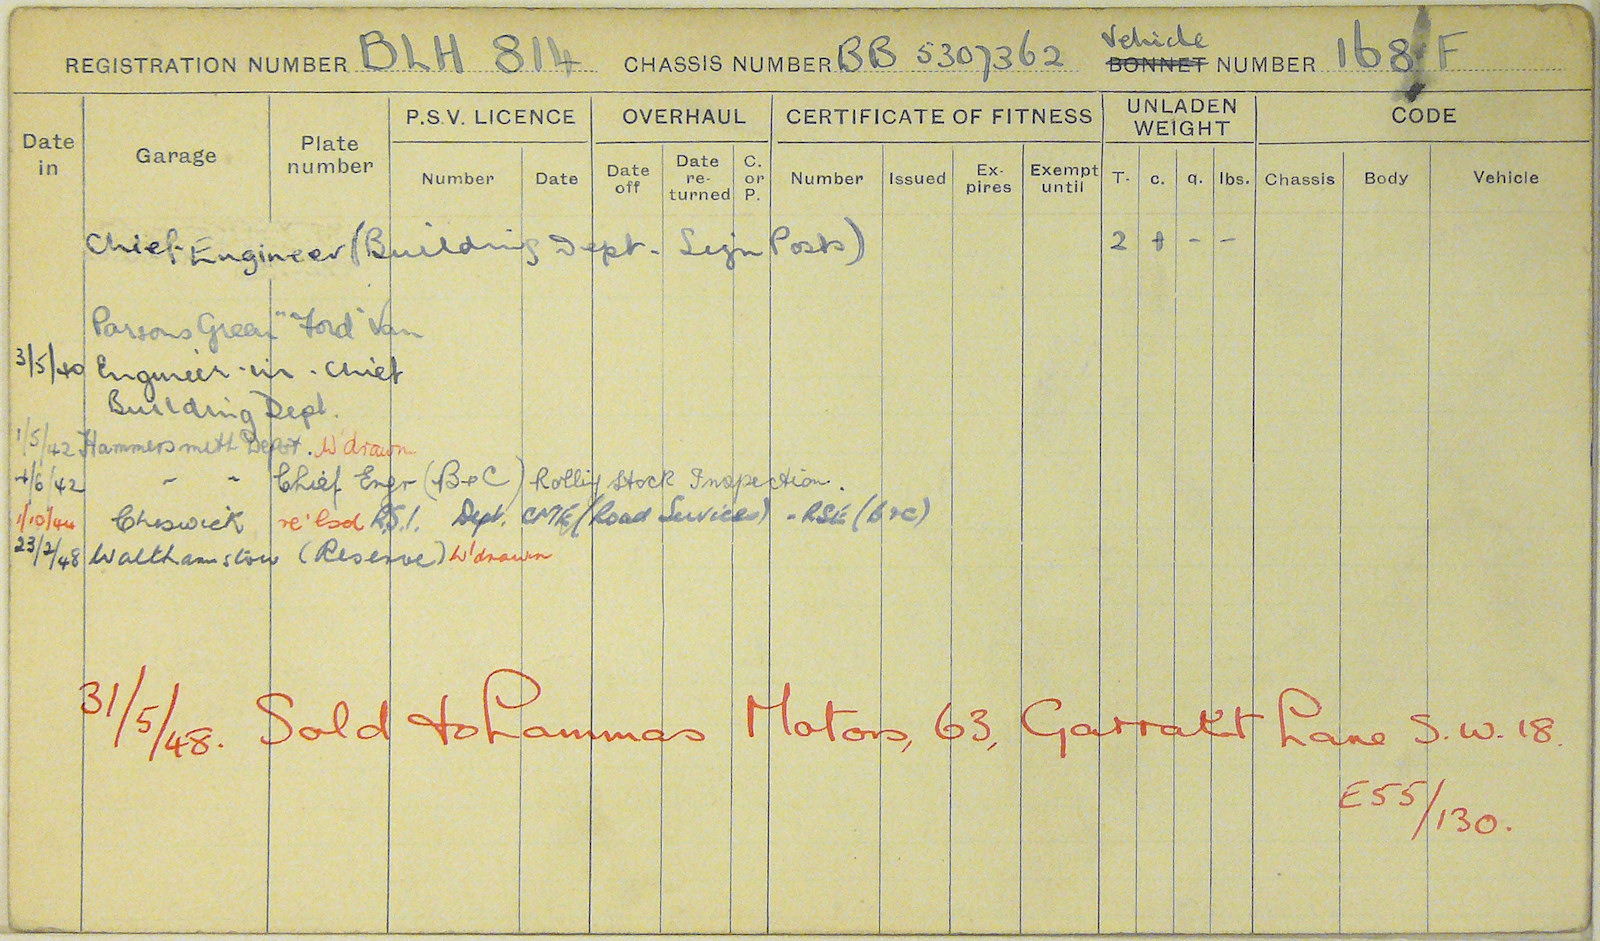 Vehicle
REGISTRATION NUMBER BLH 814 CHASSIS NUMBER BB 5307362 BONNET NUMBER 168 F
Date in Garage Plate number P.S.V. LICENCE OVERHAUL CERTIFICATE OF FITNESS UNLADEN WEIGHT CODE
Number Date Date off Date re-turned C. or P. Number Issued Ex-pires Exempt until T. c. q. lbs. Chassis Body Vehicle
Chief Engineer (Building Dept. Sign Posts) 2 - -
Parsons Green "Ford" Van
3/5/40 Engineer-in-Chief
Building Dept.
1/5/42 Hammersmith Depot. W'drawn
4/6/42 " " Chief Engr (B+C) Rolling Stock Inspection.
1/10/44 Chiswick re'lsd R.S.I. Dept. CME (Road Services) - RSE (B+C)
23/2/48 Walthamstow (Reserve) W'drawn
31/5/48. Sold to Lammas Motors, 63, Garratt Lane S.W.18.
E55/130.